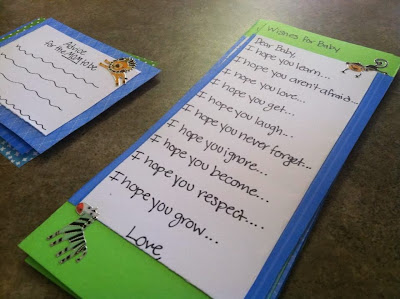 Advice
for the Mom to be
Wishes For Baby
Dear Baby,
I hope you learn...
I hope you aren't afraid...
I hope you love...
I hope you get...
I hope you laugh...
I hope you never forget...
I hope you ignore...
I hope you become...
I hope you respect....
I hope you grow...
Love,